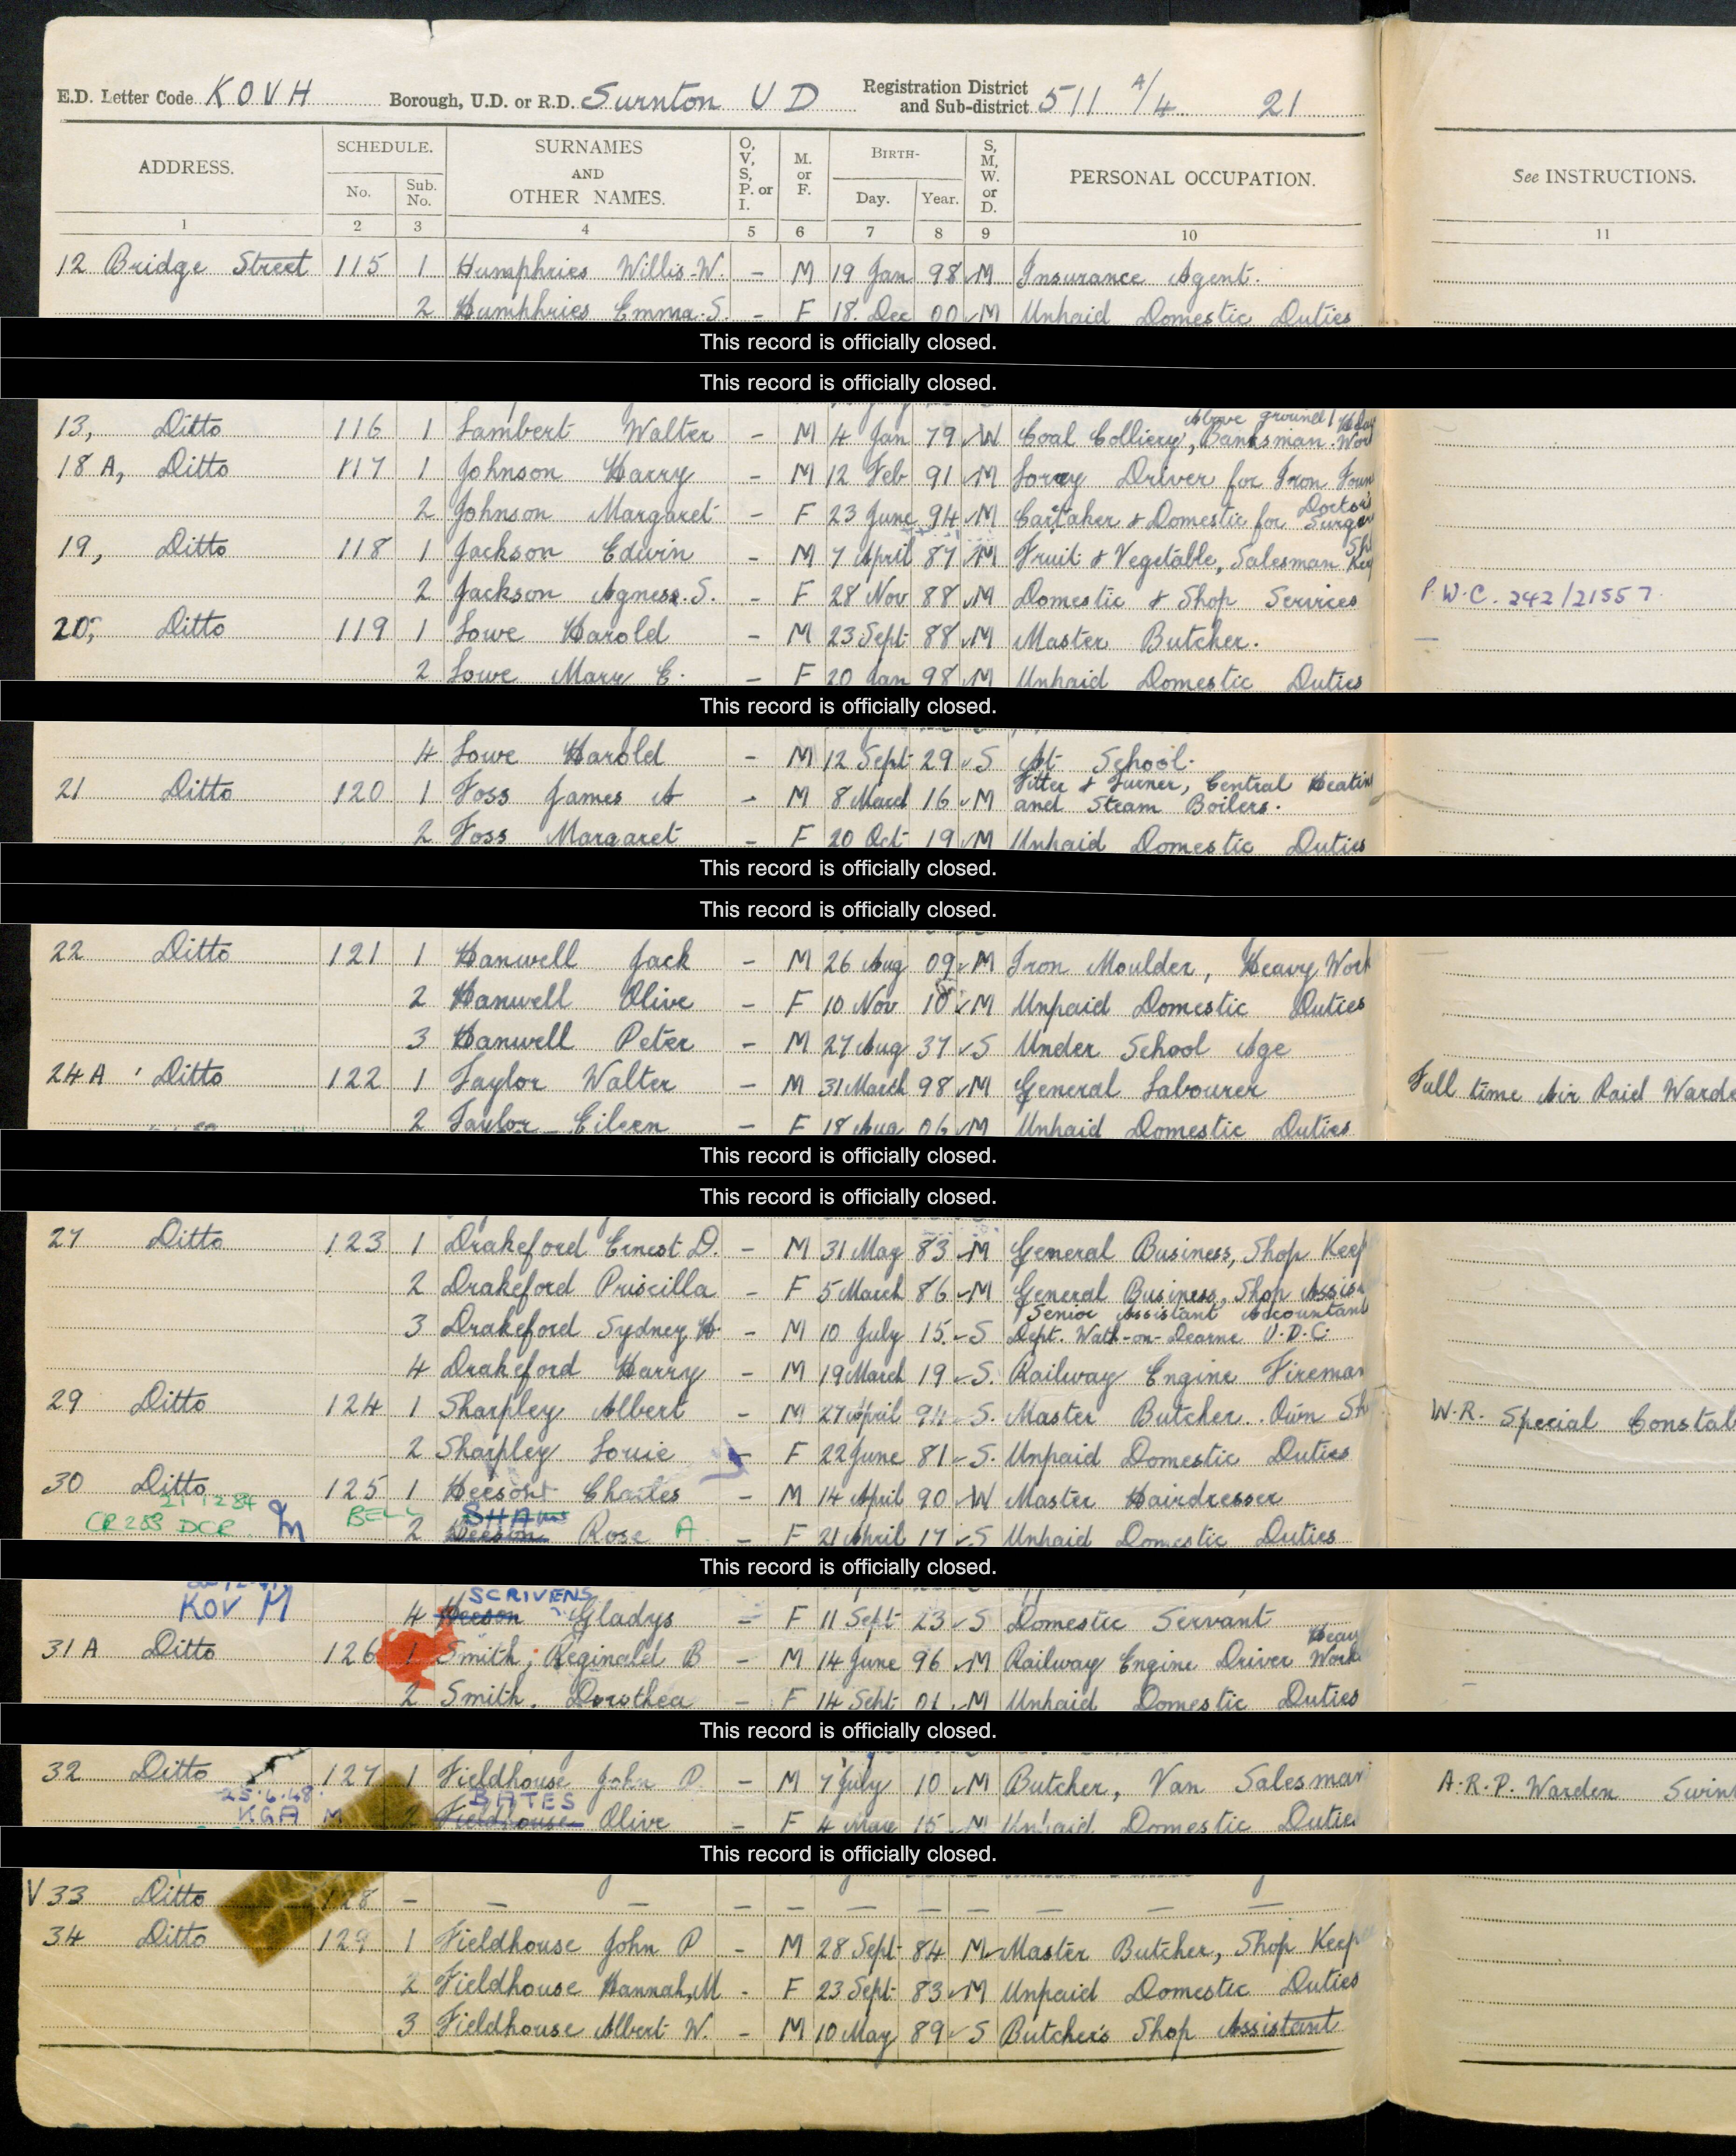 E.D. Letter Code K O V H Borough, U.D. or R.D. Swinton U D Registration District and Sub-district 511 A/4 21
ADDRESS. SCHEDULE. SURNAMES AND OTHER NAMES. O, V, S, P. or I. M. or F. BIRTH- S, M, W. or D. PERSONAL OCCUPATION. See INSTRUCTIONS.
No. Sub. No. Day. Year.
1 2 3 4 5 6 7 8 9 10 11
12 Bridge Street 115 1 Humphries Willis W. – M 19 Jan 98 M Insurance Agent.
2 Humphries Emma S. – F 18 Dec 00 M Unpaid Domestic Duties
This record is officially closed.
This record is officially closed.
13, Ditto 116 1 Lambert Walter – M 4 Jan 79 W Coal Colliery, Banksman. Above ground
18 A, Ditto 117 1 Johnson Harry – M 12 Feb 91 M Lorry Driver for Iron Foun
2 Johnson Margaret – F 23 June 94 M Caretaker & Domestic for Doctor's Surger
19, Ditto 118 1 Jackson Edwin – M 7 April 87 M Fruit & Vegetable, Salesman
2 Jackson Agness. S. – F 28 Nov 88 M Domestic & Shop Services P.W.C. 242/21557
20, Ditto 119 1 Lowe Harold – M 23 Sept 88 M Master Butcher.
2 Lowe Mary E. – F 20 Jan 98 M Unpaid Domestic Duties
This record is officially closed.
4 Lowe Harold – M 12 Sept 29 S At School.
21 Ditto 120 1 Foss James A – M 8 March 16 M Fitter & Turner, Central Heatin
and Steam Boilers.
2 Foss Margaret – F 20 Oct 19 M Unpaid Domestic Duties
This record is officially closed.
This record is officially closed.
22 Ditto 121 1 Hanwell Jack – M 26 Aug 09 M Iron Moulder, Heavy Work
2 Hanwell Olive – F 10 Nov 10 M Unpaid Domestic Duties
3 Hanwell Peter – M 27 Aug 37 S Under School Age
24 A Ditto 122 1 Taylor Walter – M 31 March 98 M General Labourer Full time Air Raid Warde
2 Taylor Eileen – F 18 Aug 06 M Unpaid Domestic Duties
This record is officially closed.
This record is officially closed.
27 Ditto 123 1 Drakeford Ernest D. – M 31 May 83 M General Business, Shop Keep
2 Drakeford Priscilla – F 5 March 86 M General Business, Shop Assis
3 Drakeford Sydney H – M 10 July 15 S Senior Assistant Accountant
Dept. Wath-on-Dearne U.D.C.
4 Drakeford Harry – M 19 March 19 S. Railway Engine Fireman
29 Ditto 124 1 Sharpley Albert – M 27 April 94 S. Master Butcher. Own Sh W.R. Special Constab
2 Sharpley Louie – F 22 June 81 S. Unpaid Domestic Duties
30 Ditto 125 1 Heeson Charles – M 14 April 90 W Master Hairdresser
21 12 84 BELL SHAW
CR 283 DCR M 2 Heeson Rose A – F 21 April 17 S Unpaid Domestic Duties
This record is officially closed.
SCRIVENS
KOV M 4 Heeson Gladys – F 11 Sept 23 S Domestic Servant
31 A Ditto 126 1 Smith, Reginald B – M 14 June 96 M Railway Engine Driver Heavy Work
2 Smith, Dorothea – F 14 Sept 01 M Unpaid Domestic Duties
This record is officially closed.
32 Ditto 127 1 Fieldhouse John P. – M 7 July 10 M Butcher, Van Salesman A.R.P. Warden Swin
25.6.48. BATES
KGA M 2 Fieldhouse Olive – F 4 May 15 M Unpaid Domestic Duties
This record is officially closed.
V 33 Ditto 128 – – – – – – – – – – –
34 Ditto 129 1 Fieldhouse John P – M 28 Sept 84 M Master Butcher, Shop Keep
2 Fieldhouse Hannah, M – F 23 Sept 83 M Unpaid Domestic Duties
3 Fieldhouse Albert W. – M 10 May 89 S Butcher's Shop Assistant